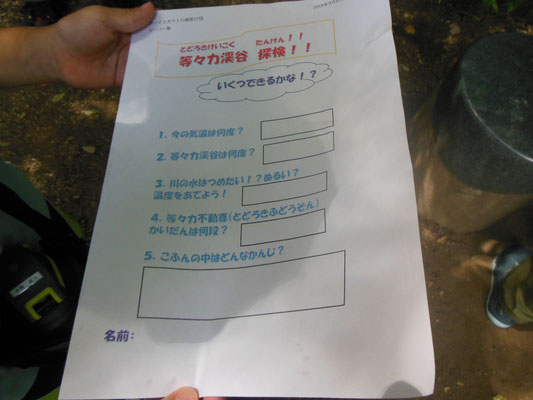 とどろきけいこく　たんけん！！
等々力渓谷　探検！！
いくつできるかな！？
1. 今の気温は何度？
2. 等々力渓谷は何度？
3. 川の水はつめたい！？ぬるい？
温度をあてよう！
4. 等々力不動尊(とどろきふどうそん)
かいだんは何段？
5. こふんの中はどんなかんじ？
名前：